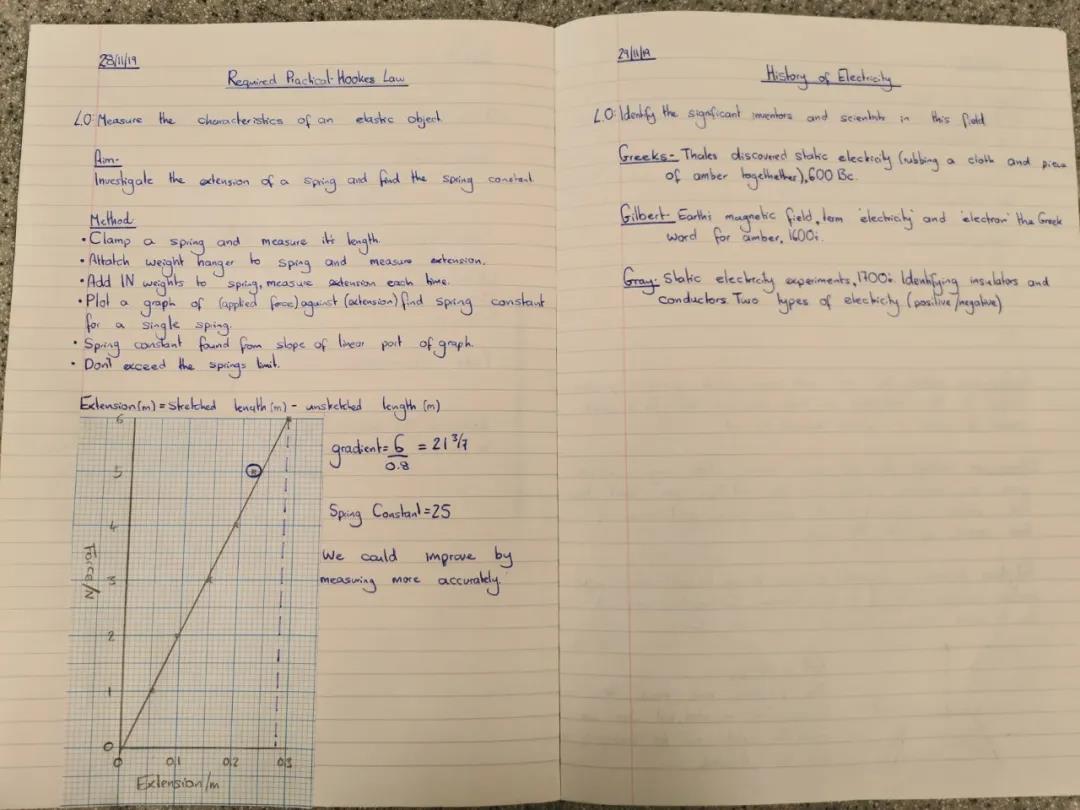 28/11/19
Required Practical-Hookes Law
L.O: Measure the characteristics of an elastic object
Aim-
Investigate the extension of a spring and find the spring constant
Method
• Clamp a spring and measure its length.
• Attatch weight hanger to spring and measure extension.
• Add 1N weights to spring, measure extension each time.
• Plot a graph of (applied force) against (extension) find spring constant
for a single spring.
• Spring constant found from slope of linear part of graph.
• Don't exceed the springs limit.
Extension(m) = Stretched length (m) - unstretched length (m)
6
5
4
3
2
1
0
Force/N
0 0.1 0.2 0.3
Extension/m
gradient = 6 = 21 3/7
0.8
Spring Constant = 25
We could improve by
measuring more accurately.
29/11/19
History of Electricity
L.O: Identify the significant inventors and scientists in this field
Greeks- Thales discovered static electricity (rubbing a cloth and piece
of amber togethether), 600 Bc.
Gilbert- Earths magnetic field, term 'electricity' and 'electron' the Greek
word for amber, 1600s.
Gray- Static electricity experiments, 1700s. Identifying insulators and
conductors. Two types of electricity (positive/negative)